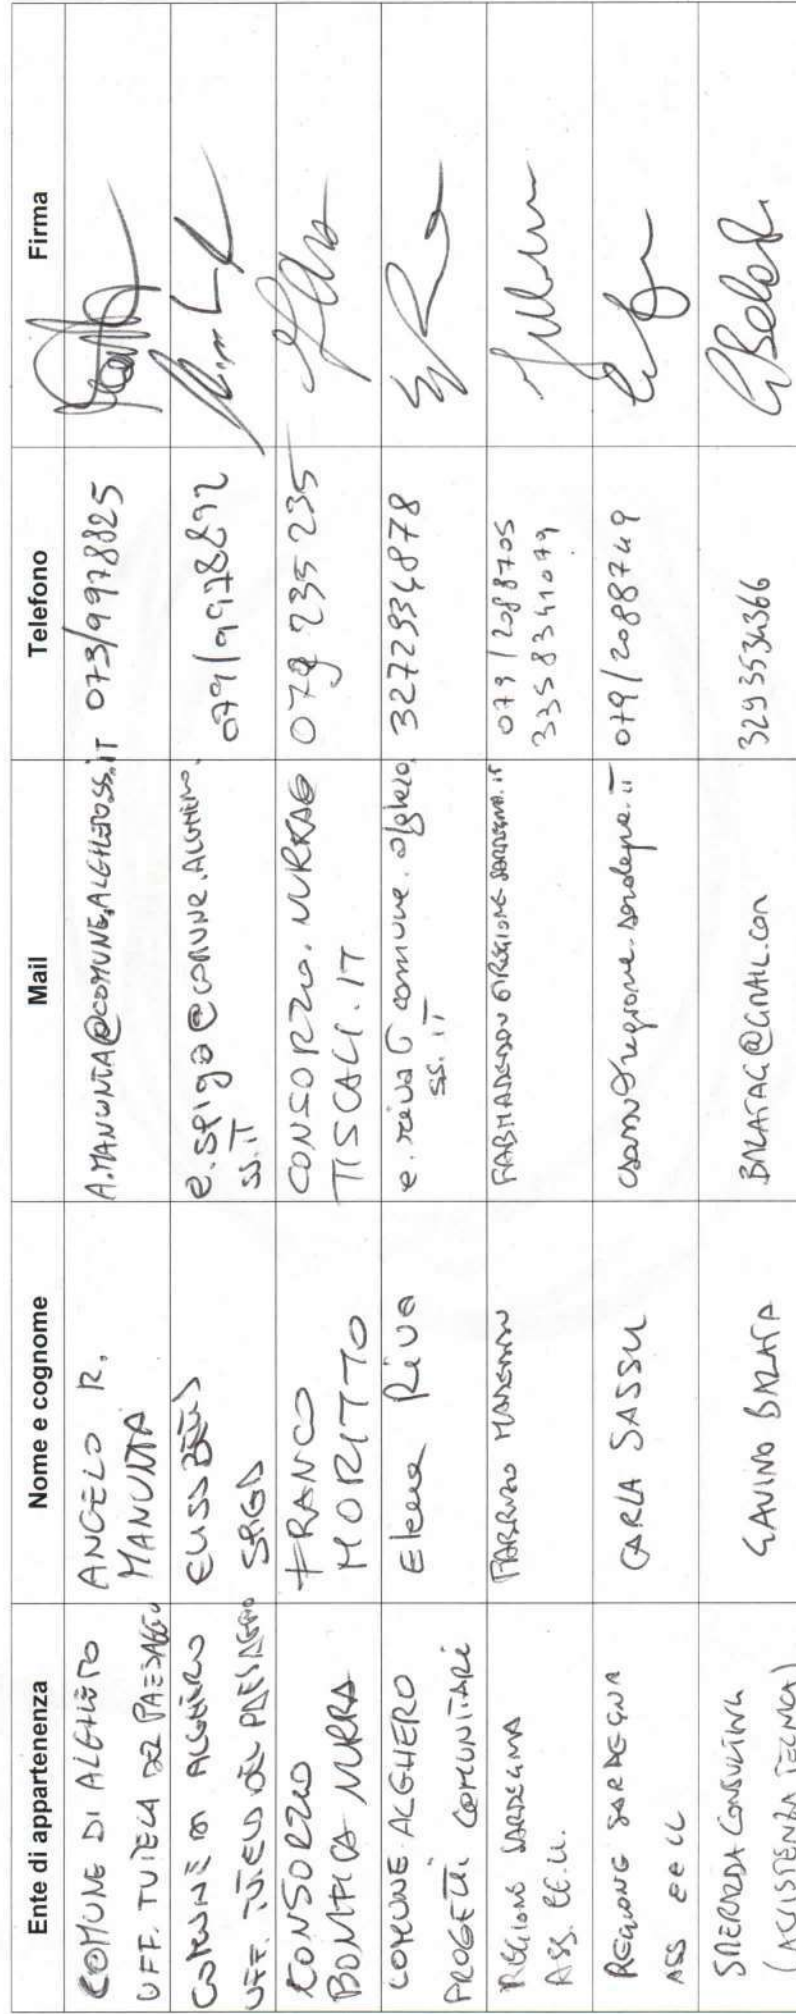 Ente di appartenenza
Nome e cognome
Mail
Telefono
Firma
COMUNE DI ALGHERO
UFF. TUTELA DEL PAESAGGIO
ANGELO R.
MANUNTA
A.MANUNTA@COMUNE.ALGHERO.SS.IT
079/9978825
COMUNE DI ALGHERO
UFF. TUTELA DEL PAESAGGIO
SPIGA
e.spiga@COMUNE.ALGHERO.
SS.IT
079/9978892
CONSORZIO
BONIFICA NURRA
FRANCO
MORITTO
CONSORZIO.NURRA@
TISCALI.IT
079 235 235
COMUNE ALGHERO
PROGETTI COMUNITARI
Elena Riva
e.riva@comune.alghero.
ss.it
3272934878
REGIONE SARDEGNA
ASS. EE.LL.
FABRIZIO MADEDDU
FABMADEDDU@REGIONE.SARDEGNA.IT
079/2088705
3358341079
REGIONE SARDEGNA
ASS EE LL
CARLA SASSU
csassu@regione.sardegna.it
079/2088749
CONSULTING
(ASSISTENZA TECNICA)
GAVINO BALATA
BALATAG@GMAIL.COM
3293534366
GBalata